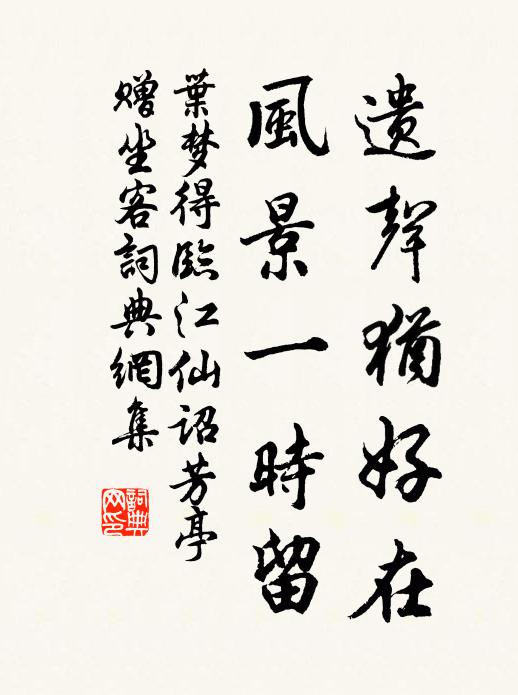 遗声犹好在
風景一時留
葉梦得臨江仙诏芳亭
赠坐客詞典網集
詞典网印